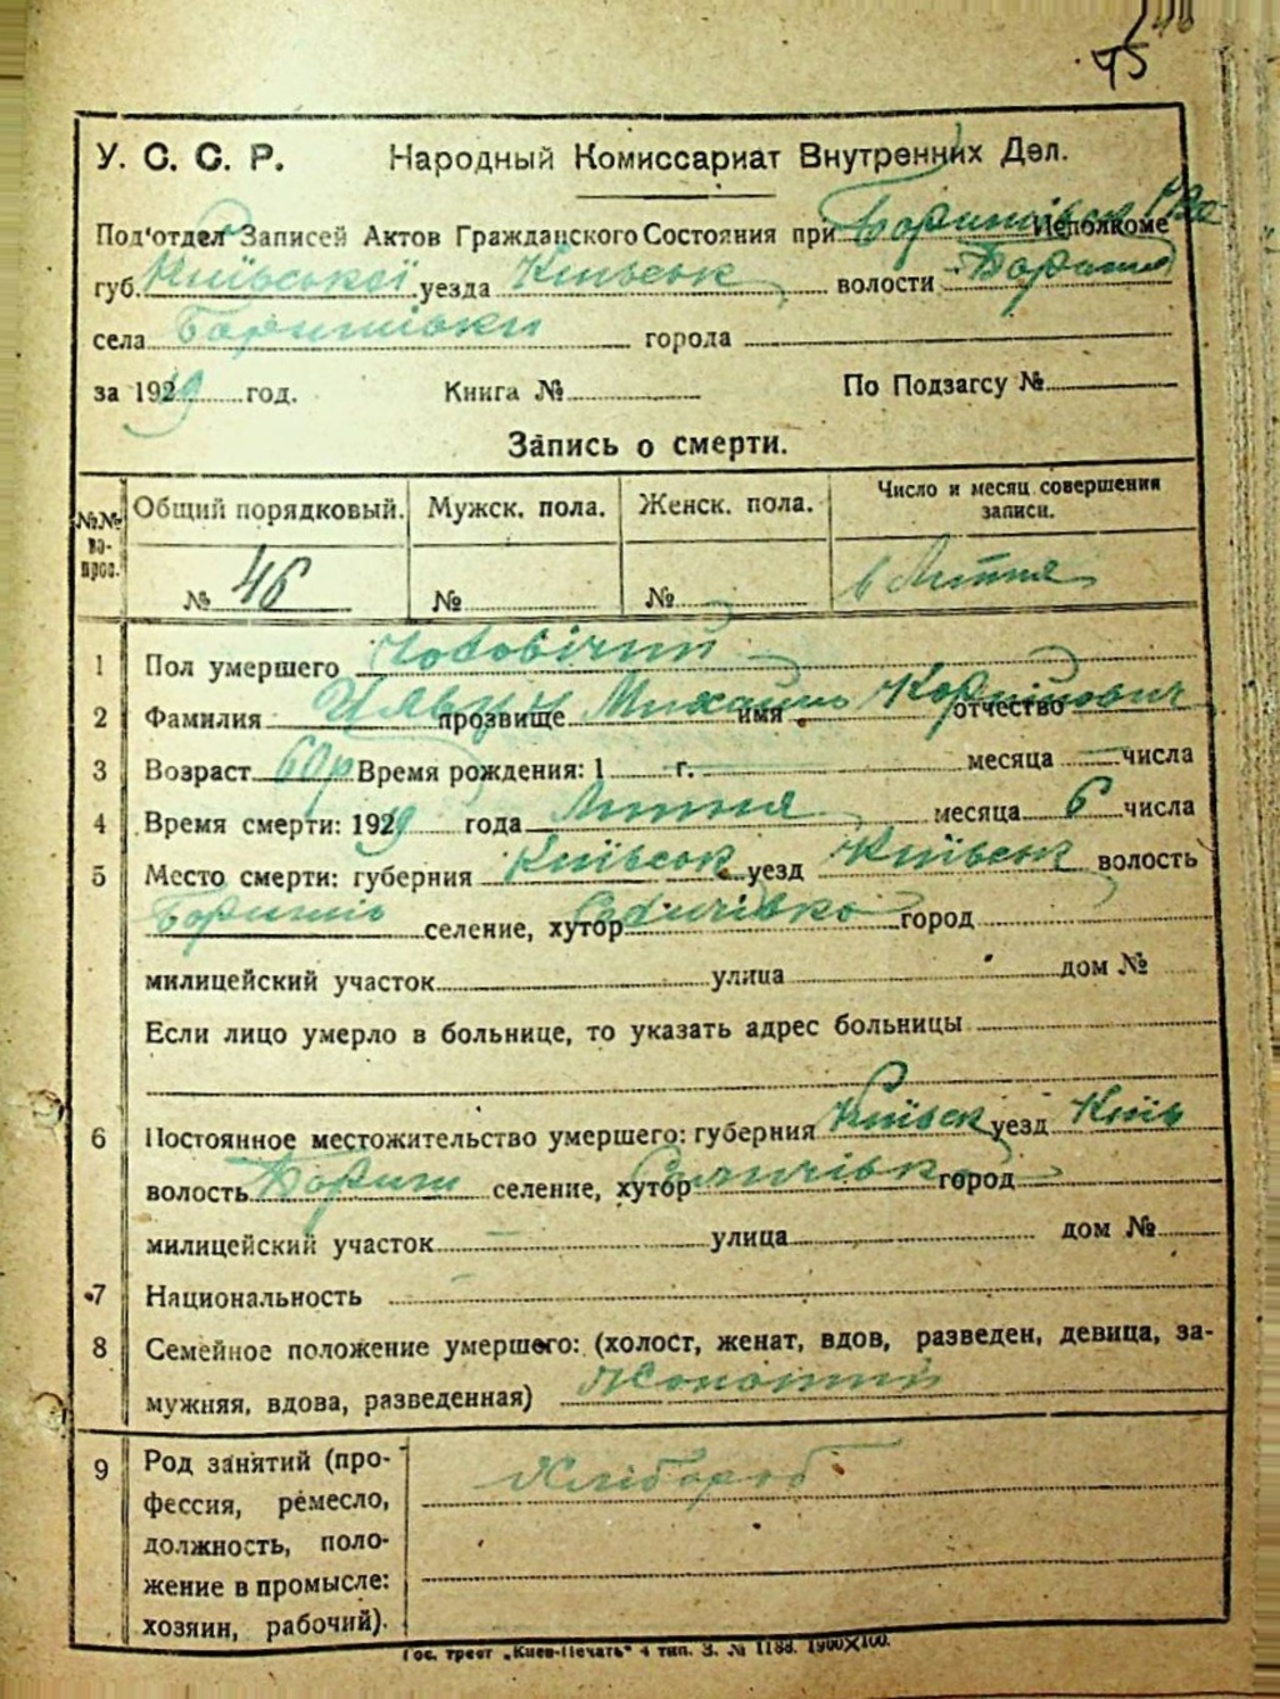 45
У. С. С. Р. Народный Комиссариат Внутренних Дел.
Под'отдел Записей Актов Гражданского Состояния при Исполкоме
губ. Київської уезда Київськ волости Бориш
села Боришівки города
за 1929 год. Книга № По Подзагсу №
Запись о смерти.
№№ вопрос. Общий порядковый. Мужск. пола. Женск. пола. Число и месяц совершения записи.
№ 46 № № 6 Липня
1 Пол умершего Чоловічий
2 Фамилия прозвище Михайло имя Корнійович отчество
3 Возраст 60 р Время рождения: 1 г. месяца числа
4 Время смерти: 1929 года Липня месяца 6 числа
5 Место смерти: губерния Київськ уезд Київськ волость
селение, хутор город
милицейский участок улица дом №
Если лицо умерло в больнице, то указать адрес больницы
6 Постоянное местожительство умершего: губерния Київськ уезд Київ
волость Бориш селение, хутор город
милицейский участок улица дом №
7 Национальность
8 Семейное положение умершего: (холост, женат, вдов, разведен, девица, за-
мужняя, вдова, разведенная) Жонатий
9 Род занятий (про- Хлібороб
фессия, ремесло,
должность, поло-
жение в промысле:
хозяин, рабочий).
Гос. трест „Киев-Печать" 4 тип. З. № 1188. 1900×100.